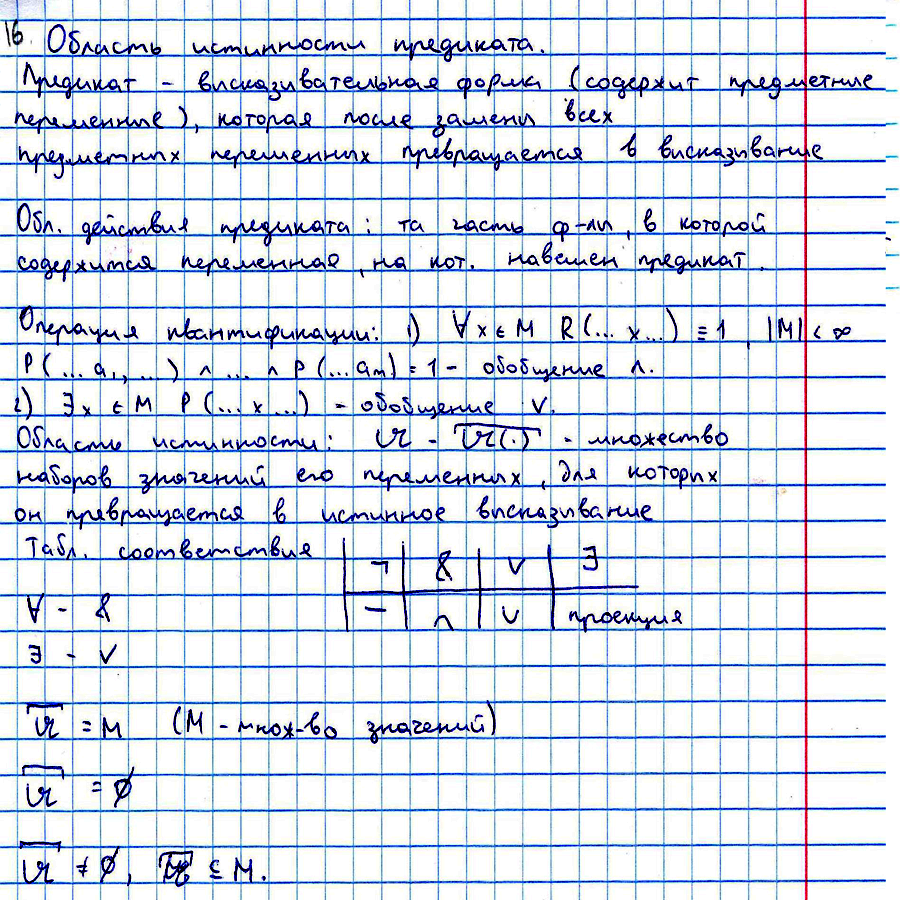 16. Область истинности предиката.
Предикат - висказивательная форма (содержит предметние
переменние), которая после замены всех
предметных переменных превращается в висказивание
Обл. действия предиката: та часть ф-лы, в которой
содержится переменная, на кот. навешен предикат.
Операция квантификации: 1) ∀x∈M R(...x...) ≡ 1, |M| < ∞
P(...a₁,...) ∧ ... ∧ P(...aₘ) = 1 - обобщение ∧.
2) ∃x ∈ M P(...x...) - обобщение ∨.
Область истинности: 𝔄 - 𝔄(·) - множество
наборов значений его переменных, для которых
он превращается в истинное висказивание
Табл. соответствия ¬ & ∨ ∃
∀ - & — ∩ ∪ проекция
∃ - ∨
𝔄 = M (M - множ-во значений)
𝔄 = ∅
𝔄 ≠ ∅, 𝔄 ⊆ M.